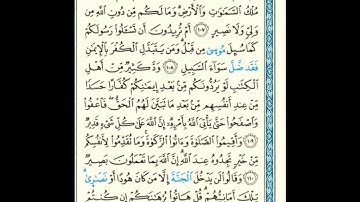 مُلْكُ ٱلسَّمَٰوَٰتِ وَٱلْأَرْضِ وَمَا لَكُم مِّن دُونِ ٱللَّهِ مِن
وَلِيٍّ وَلَا نَصِيرٍ ١٠٧ أَمْ تُرِيدُونَ أَن تَسْـَٔلُوا۟ رَسُولَكُمْ
كَمَا سُئِلَ مُوسَىٰ مِن قَبْلُ وَمَن يَتَبَدَّلِ ٱلْكُفْرَ بِٱلْإِيمَٰنِ
فَقَدْ ضَلَّ سَوَآءَ ٱلسَّبِيلِ ١٠٨ وَدَّ كَثِيرٌ مِّنْ أَهْلِ
ٱلْكِتَٰبِ لَوْ يَرُدُّونَكُم مِّنۢ بَعْدِ إِيمَٰنِكُمْ كُفَّارًا حَسَدًا
مِّنْ عِندِ أَنفُسِهِم مِّنۢ بَعْدِ مَا تَبَيَّنَ لَهُمُ ٱلْحَقُّ فَٱعْفُوا۟
وَٱصْفَحُوا۟ حَتَّىٰ يَأْتِىَ ٱللَّهُ بِأَمْرِهِۦٓ إِنَّ ٱللَّهَ عَلَىٰ كُلِّ شَىْءٍ قَدِيرٌ
١٠٩ وَأَقِيمُوا۟ ٱلصَّلَوٰةَ وَءَاتُوا۟ ٱلزَّكَوٰةَ وَمَا تُقَدِّمُوا۟ لِأَنفُسِكُم
مِّنْ خَيْرٍ تَجِدُوهُ عِندَ ٱللَّهِ إِنَّ ٱللَّهَ بِمَا تَعْمَلُونَ بَصِيرٌ
١١٠ وَقَالُوا۟ لَن يَدْخُلَ ٱلْجَنَّةَ إِلَّا مَن كَانَ هُودًا أَوْ نَصَٰرَىٰ
تِلْكَ أَمَانِيُّهُمْ قُلْ هَاتُوا۟ بُرْهَٰنَكُمْ إِن كُنتُمْ